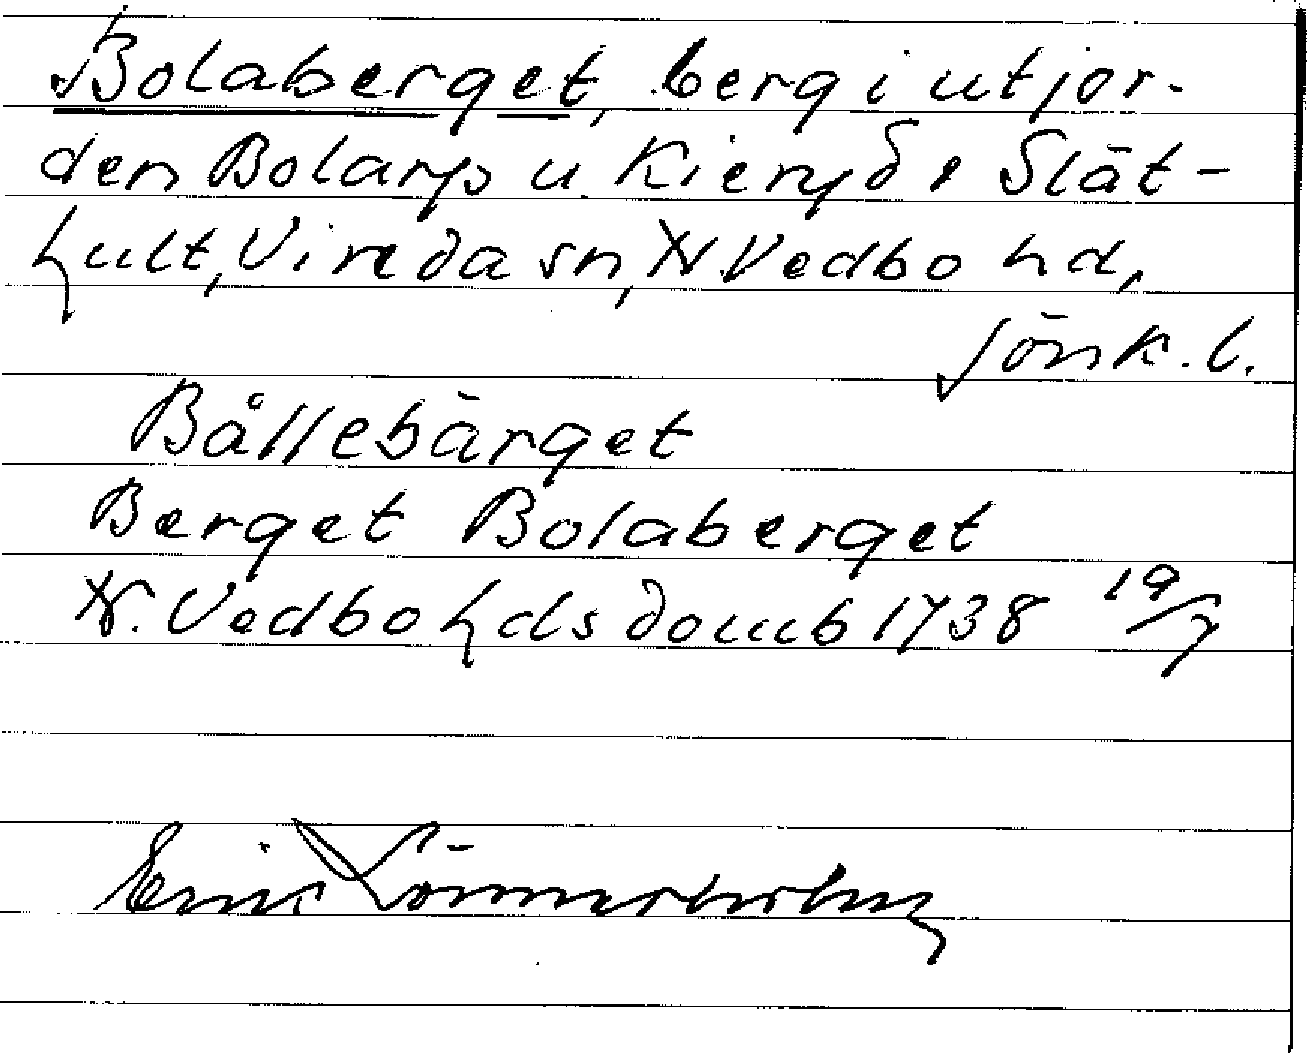 Bolaberget, berg i utjor-
den Bolarp u. Kieryd o Slät-
hult, Vireda sn, N Vedbo hd,
Jönk. l.
Bållebärget
Berget Bolaberget
N. Vedbo hds domb 1738 19/7
Erik Lönnerholm